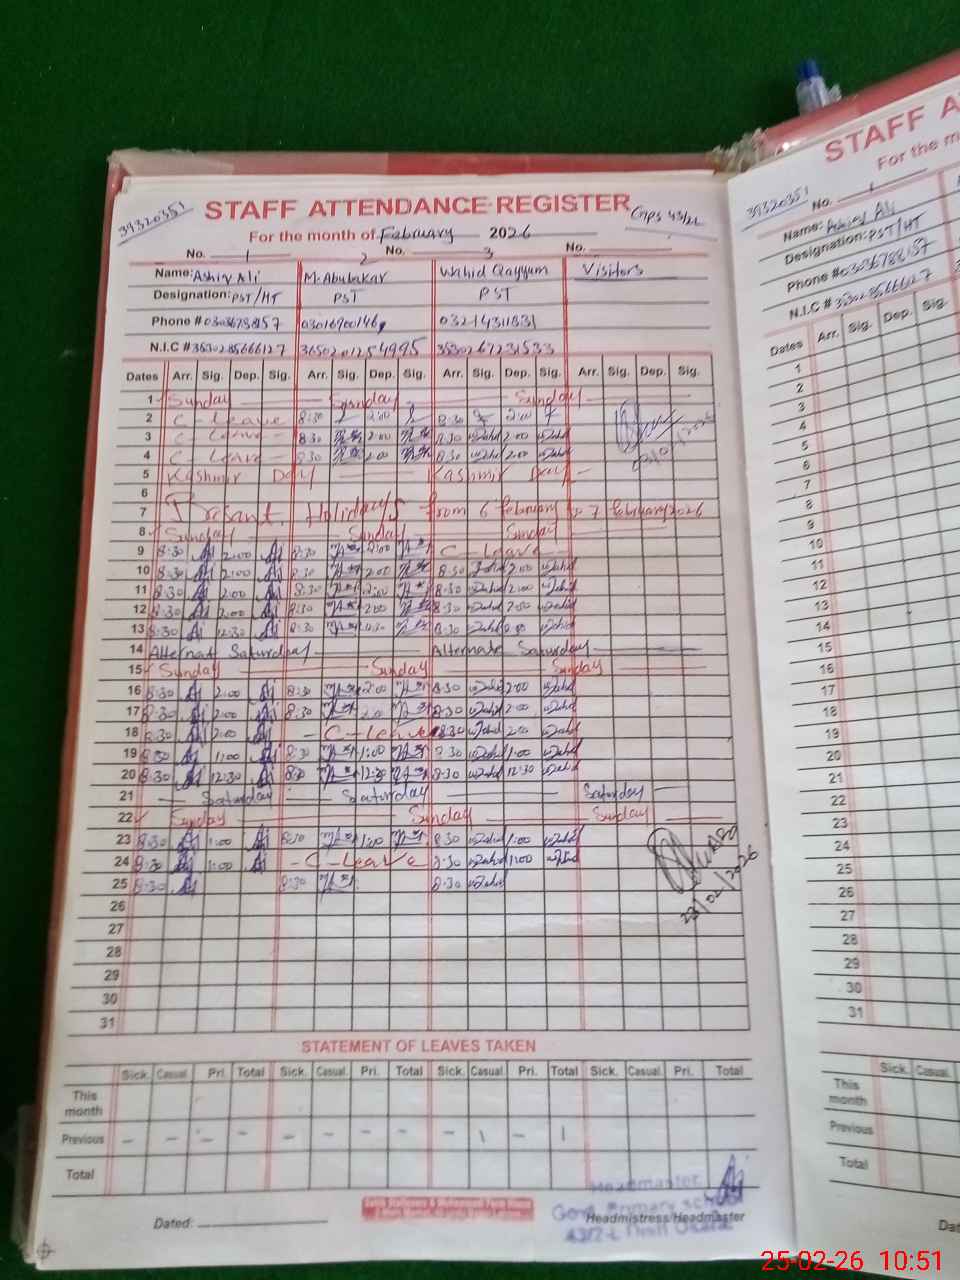 39320351
STAFF ATTENDANCE REGISTER
GMPS 43/2L
For the month of February 2026
No. 1 2 No. 3 No.
Name: Ashiq Ali M. Abubakar Wahid Qayyum Visitors
Designation: PST/HT PST PST
Phone # 03036788157 03016900146 03214311831
N.I.C # 3530285666127 3650201254995 3530267231533
Dates Arr. Sig. Dep. Sig. Arr. Sig. Dep. Sig. Arr. Sig. Dep. Sig. Arr. Sig. Dep. Sig.
1 Sunday Sunday Sunday
2 C-Leave 8:30 2:00 8:30 2:00
3 C-Leave 8:30 2:00 8:30 Wahid 2:00 Wahid
4 C-Leave 8:30 2:00 8:30 Wahid 2:00 Wahid
5 Kashmir Day Kashmir Day
6
7 Basant Holidays from 6 february to 7 february 2026
8 Sunday Sunday Sunday
9 8:30 2:00 8:30 2:00 C-Leave
10 8:30 2:00 8:30 2:00 8:30 Wahid 2:00 Wahid
11 8:30 2:00 8:30 2:00 8:30 Wahid 2:00 Wahid
12 8:30 2:00 8:30 2:00 8:30 Wahid 2:00 Wahid
13 8:30 12:30 8:30 8:30 Wahid Wahid
14 Alternate Saturday Alternate Saturday
15 Sunday Sunday Sunday
16 8:30 2:00 8:30 2:00 8:30 Wahid 2:00 Wahid
17 8:30 2:00 8:30 2:00 8:30 Wahid 2:00 Wahid
18 8:30 2:00 C-Leave 8:30 Wahid 2:00 Wahid
19 8:30 1:00 8:30 1:00 8:30 Wahid 1:00 Wahid
20 8:30 12:30 8:30 12:30 8:30 Wahid 12:30 Wahid
21 Saturday Saturday Saturday
22 Sunday Sunday Sunday
23 8:30 1:00 8:30 1:00 8:30 Wahid 1:00 Wahid
24 8:30 1:00 C-Leave 8:30 Wahid 1:00 Wahid
25 8:30 8:30 8:30 Wahid
23/02/2026
26
27
28
29
30
31
STATEMENT OF LEAVES TAKEN
Sick. Casual. Pri. Total Sick. Casual. Pri. Total Sick. Casual. Pri. Total Sick. Casual. Pri. Total
This month
Previous - - - - - - - - - 1 - 1
Total
Headmaster
Govt. Primary School
Dated: Headmistress/Headmaster
39320351
STAFF A
For the m
No. 1
Name: Ashiq Ali
Designation: PST/HT
Phone # 03036788157
N.I.C # 3530285666127
Dates Arr. Sig. Dep. Sig.
1
2
3
4
5
6
7
8
9
10
11
12
13
14
15
16
17
18
19
20
21
22
23
24
25
26
27
28
29
30
31
Sick. Casual
This month
Previous
Total
Da
25-02-26 10:51